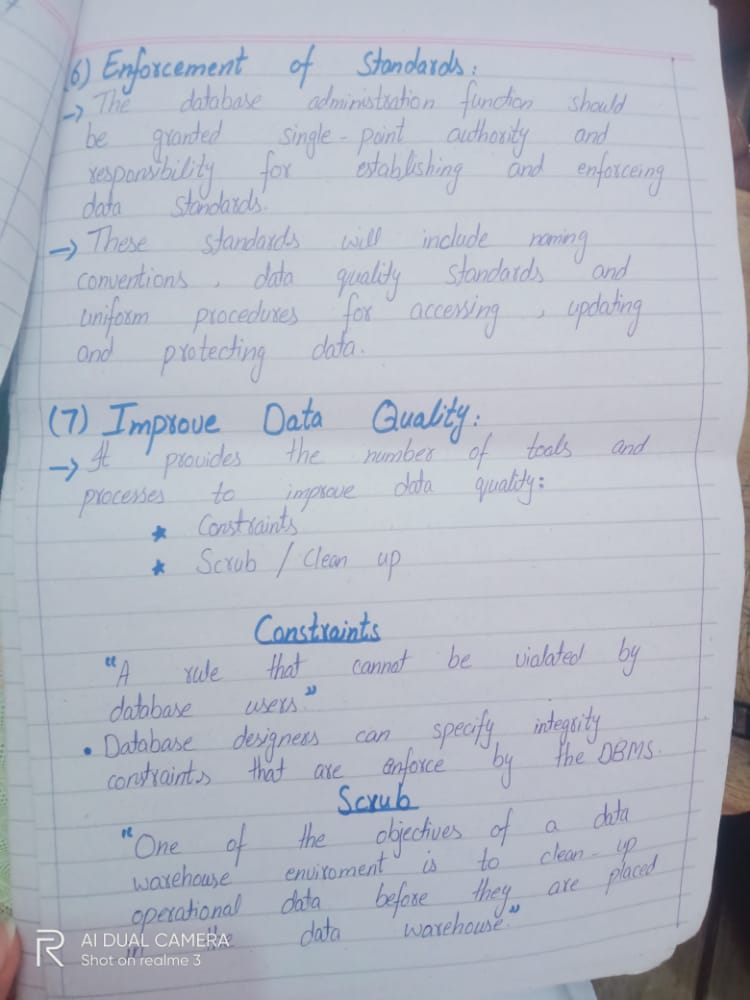 (6) Enforcement of Standards:
→ The database administration function should
be granted single-point authority and
responsibility for establishing and enforceing
data standards.
→ These standards will include naming
conventions, data quality standards and
uniform procedures for accessing, updating
and protecting data.
(7) Improve Data Quality:
→ It provides the number of tools and
processes to improve data quality:
★ Constraints
★ Scrub / Clean up
Constraints
"A rule that cannot be violated by
database users."
• Database designers can specify integrity
constraints that are enforce by the DBMS.
Scrub
"One of the objectives of a data
warehouse enviroment is to clean-up
operational data before they are placed
in the data warehouse."
R AI DUAL CAMERA
Shot on realme 3